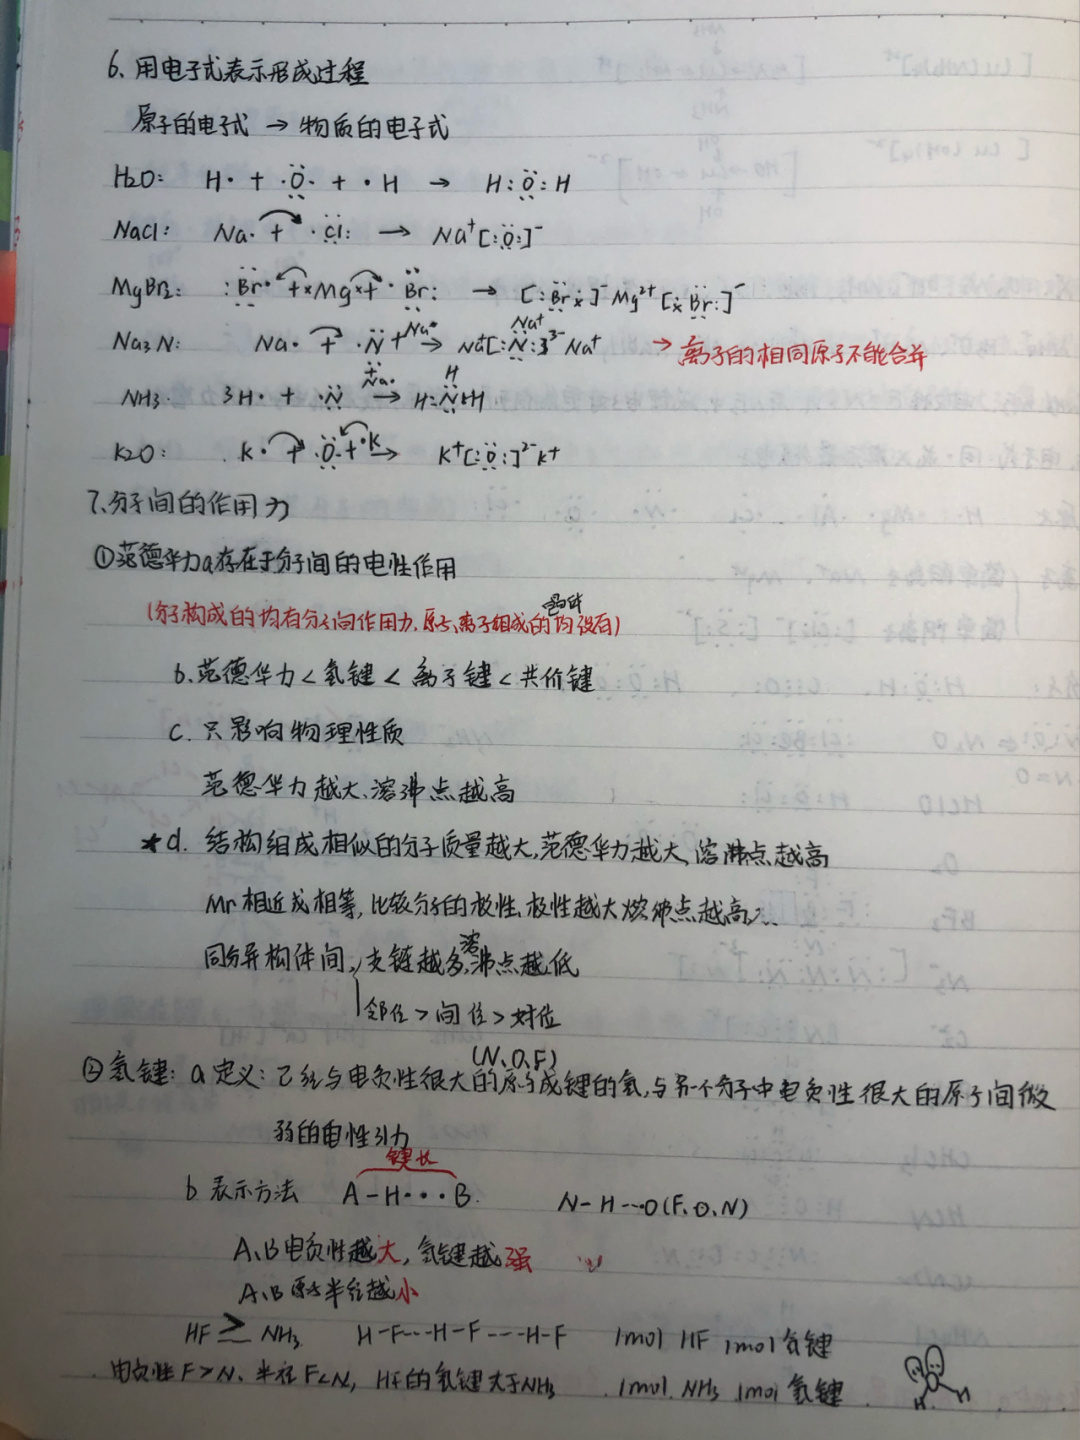 6、用电子式表示形成过程
原子的电子式 → 物质的电子式
H₂O: H· + ·Ö· + ·H → H:Ö:H
NaCl: Na· + ·Cl: → Na⁺[:O:]⁻
MgBr₂: :Br· + ×Mg× + ·Br: → [:Br×]⁻Mg²⁺[×Br:]⁻
Na₃N: Na· + ·N· + Na· → Na⁺[:N:]³⁻Na⁺ → 离子的相同原子不能合并
+ Na· Na⁺
NH₃: 3H· + ·N· → H:N:H
H
K₂O: K· + ·O· + ·K → K⁺[:O:]²⁻K⁺
7、分子间的作用力
①范德华力a存在于分子间的电性作用
(分子构成的均有分子间作用力,原子、离子组成的均没有)
b.范德华力<氢键<离子键<共价键
c.只影响物理性质
范德华力越大,溶沸点越高
★d.结构组成相似的分子质量越大,范德华力越大,溶沸点越高
Mr相近或相等,比较分子的极性,极性越大熔沸点越高
同分异构体间,支链越多,溶沸点越低
邻位>间位>对位
(N、O、F)
②氢键:a定义:已经与电负性很大的原子成键的氢,与另一个分子中电负性很大的原子间微
弱的电性引力
键长
b表示方法 A-H···B. N-H---O(F、O、N)
A、B电负性越大,氢键越强
A、B原子半径越小
HF ≥ NH₃ H-F---H-F---H-F 1mol HF 1mol氢键
电负性F>N、半径F<N, HF的氢键大于NH₃ 1mol NH₃ 1mol氢键
H H